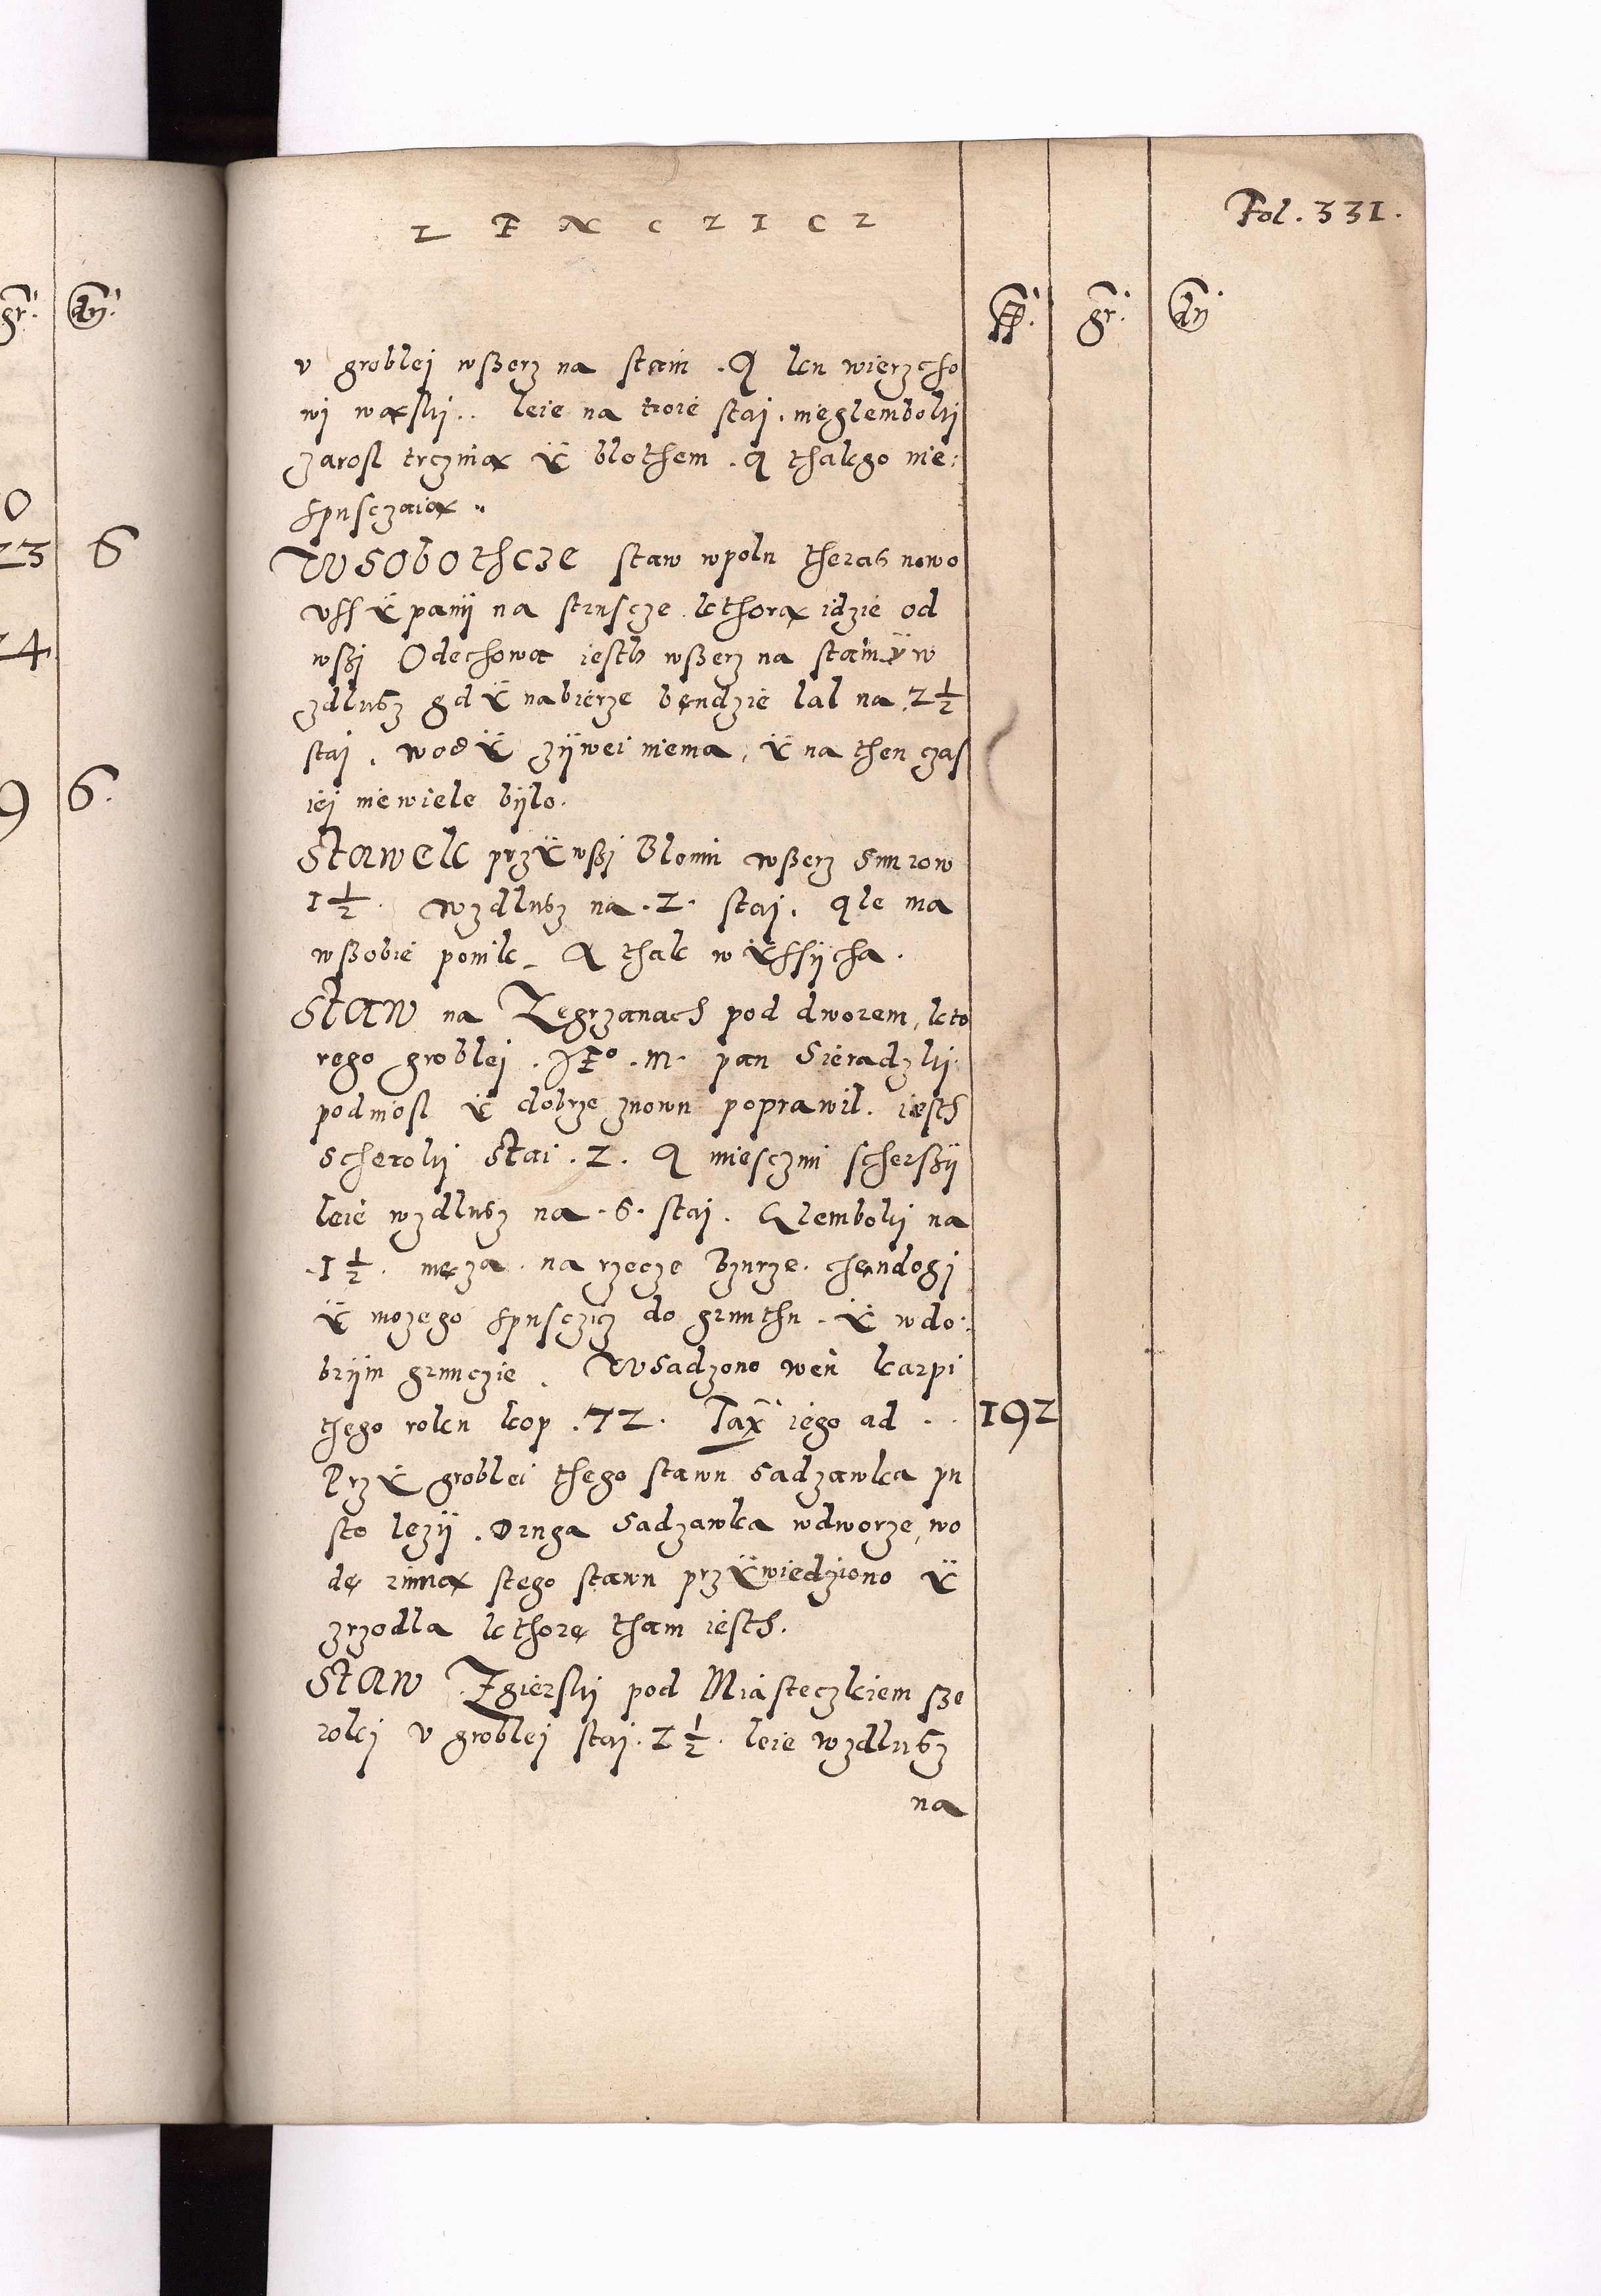 LENCZICZ
Fol. 331.
gr. dn.
ff. gr. dn
v groblej wßerz na staiń . A kn wierzcho
wj wąski .. leie na troie staj . nieglemboki
zarosl trczinią ÿ blothem . A thakgo nie:
spusczaią ..
0
WSOBOTHCZE staw wpoln theras nowo
23 6
vssÿpanÿ na strusczę kthorą idzie od
24
wßj Odechowa iesth wßerz na staiń ÿ w
zdlusz gdÿ nabierze bendzie lal na 2 1/2
staj . wodÿ zÿwei niema, ÿ na then czas
9 6.
iej niewiele bÿlo.
Stawek przÿ wßj Bloniu wßerz snurow
1 1/2 . wzdlusz na . 2 . staj . Ale ma
wßobie ponik _ A thak wÿssÿcha .
Staw na Zegrzanach pod dworem, kto
rego groblej . JE° . M . pan Sieradzki
podniosl ÿ dobrze znowu poprawil . iesth
scheroki Stai . 2 . A mieisczmi scherßÿ
leie wzdlusz na . 6 . staj . Glemboki na
. 1 1/2 . męza . na rzecze Bzurze . chendogj
ÿ mozego spusczicz do grunthu . ÿ w do:
brÿm grunczie . Wsadzono weń karpi
thego roku kop . 72 . Tax iego ad . . 192
Przÿ groblei thego stawu sadzawka pu
sto lezÿ . Druga Sadzawka wdworze, wo
dę rinną stego stawu przÿwiedziono ÿ
zrzodla kthorę tham iesth .
Staw Zgierski pod Miasteczkiem sze
rokj v groblej staj . 2 1/2 . leie wzdlusz
na